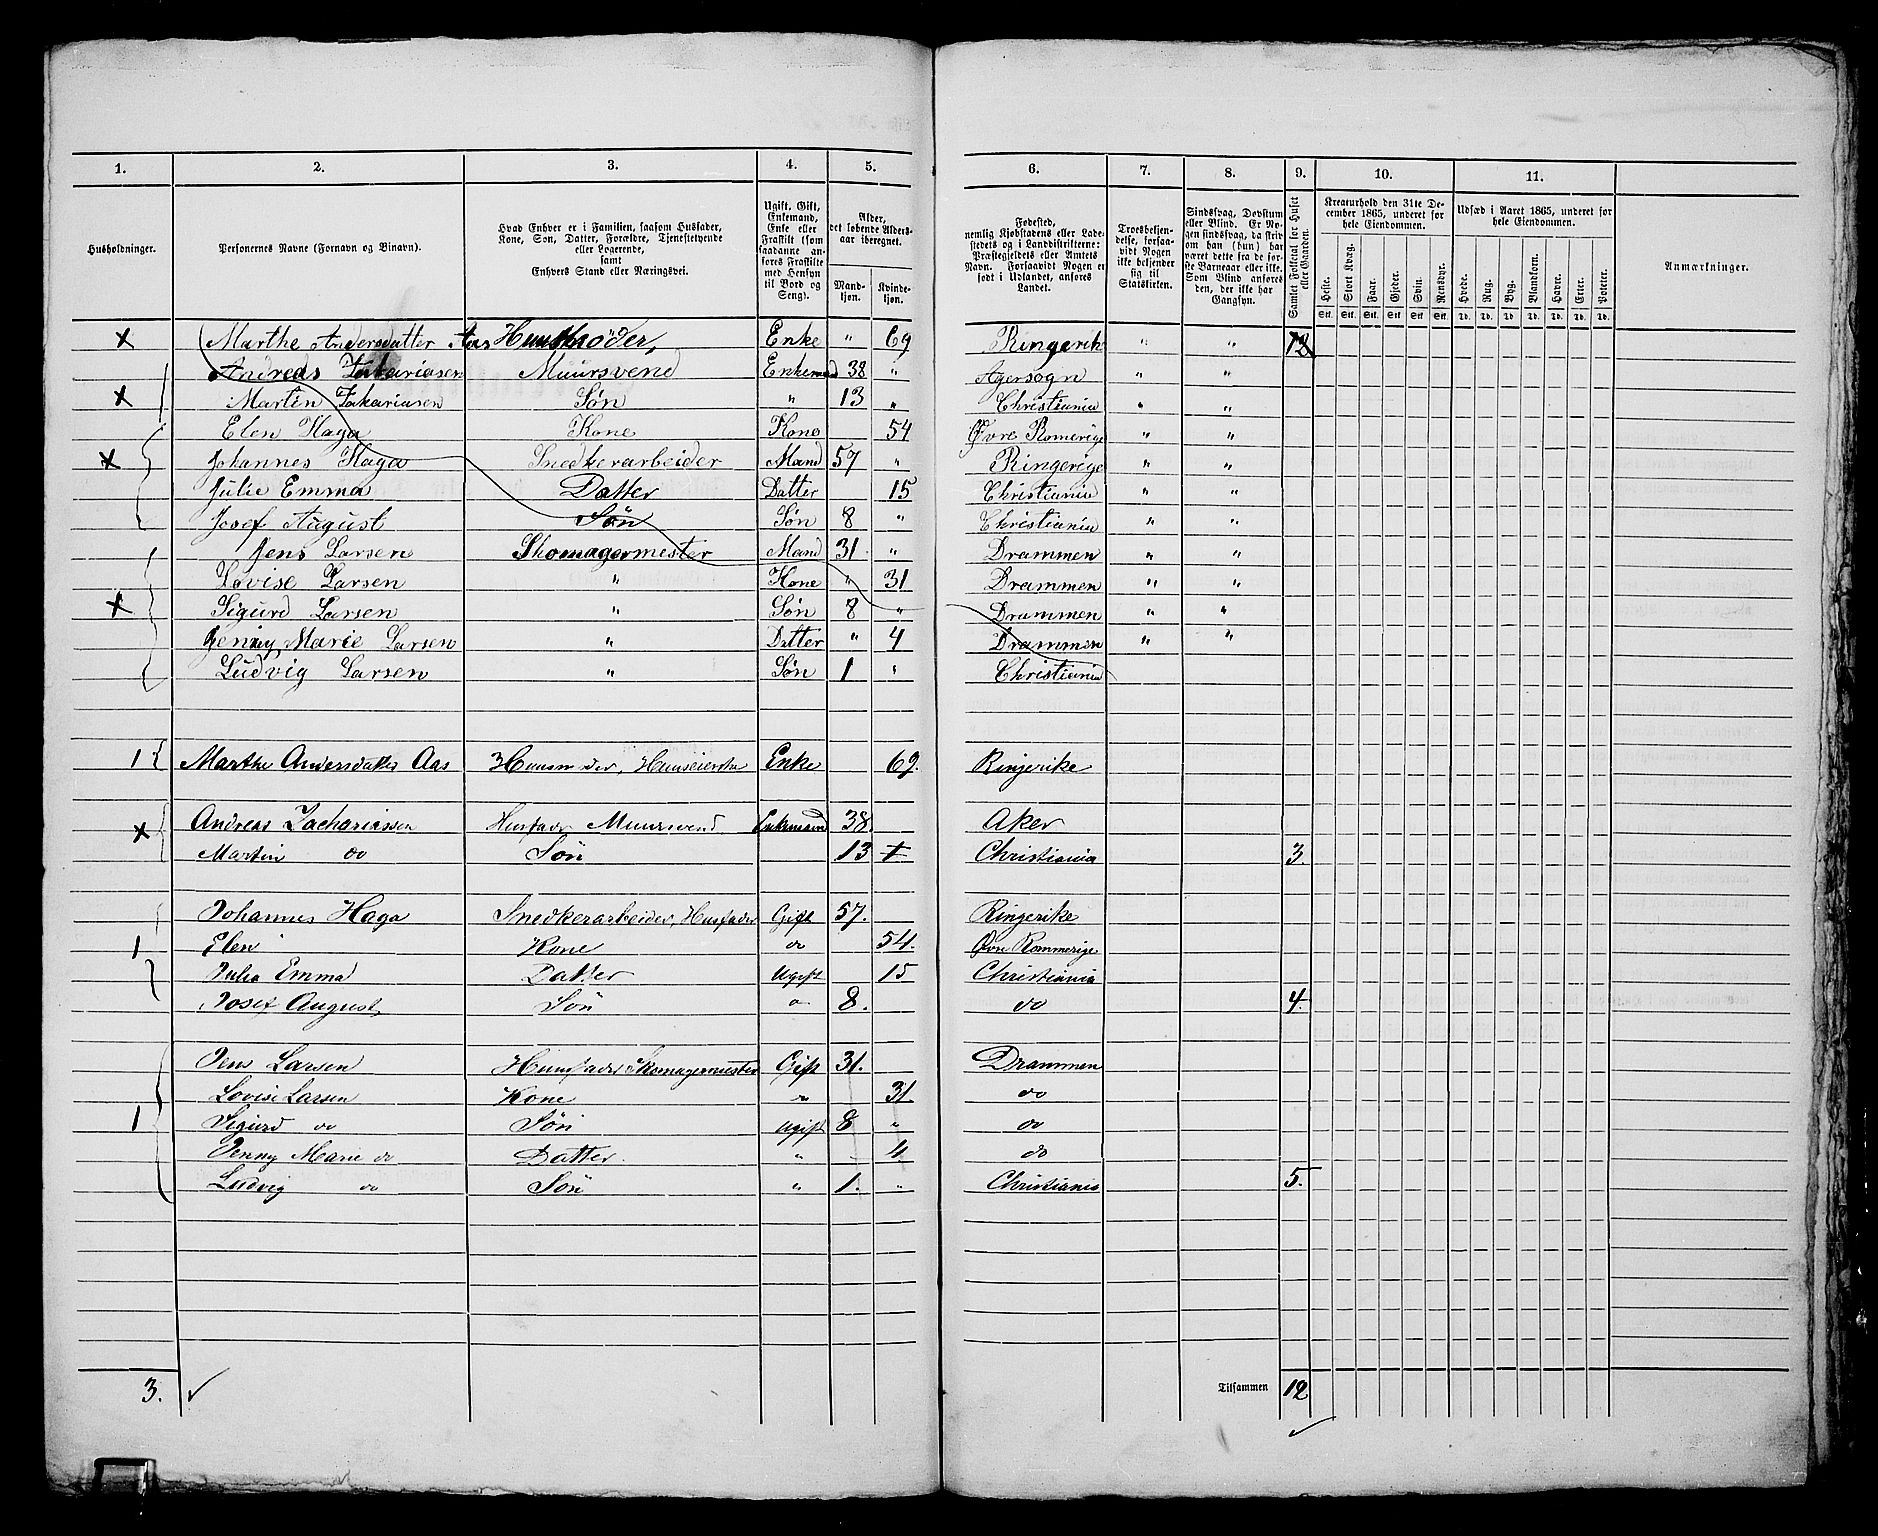 1. 2. 3. 4. 5. 6. 7. 8. 9. 10. 11.
Husholdninger.
Personernes Navne (Fornavn og Binavn).
Hvad Enhver er i Familien, saasom Husfader,
Kone, Søn, Datter, Forældre, Tjenestetyende
eller Logerende,
samt
Enhvers Stand eller Næringsvei.
Ugift, Gift,
Enkemand,
Enke eller
Fraskilt (som
saadanne an-
føres Fraskilte
med Hensyn
til Bord og
Seng).
Alder,
det løbende Alders-
aar iberegnet.
Mand-
kjøn.
Kvinde-
kjøn.
Fødested,
nemlig Kjøbstædens eller Lade-
stedets og i Landdistrikterne:
Præstegjeldets eller Amtets
Navn. Forsaavidt Nogen er
født i Udlandet, anføres
Landet.
Troesbekjen-
delse, forsaa-
vidt Nogen
ikke bekjender
sig til
Statskirken.
Sindssvag, Døvstum
eller Blind. Er No-
gen sindssvag, da skriv
om han (hun) har
været dette fra de før-
ste Barneaar eller ikke.
Som Blind anføres
den, der ikke har
Gangsyn.
Samlet Folketal for Huset
eller Gaarden.
Kreaturhold den 31te De-
cember 1865, underet for
hele Eiendommen.
Heste. Stort Kvæg. Faar. Gjeder. Svin. Rensdyr.
Stk. Stk. Stk. Stk. Stk. Stk.
Udsæd i Aaret 1865, underet for
hele Eiendommen.
Hvede. Rug. Byg. Blandkorn. Havre. Erter. Poteter.
Td. Td. Td. Td. Td. Td. Td.
Anmærkninger.
x Marthe Andersdatter Aas Huusmoder, Enke " 69 Ringerik " " 12
Andreas Zakariasen Muursvend Enkemand 38 " Agersogn " "
x Martin Zakariasen Søn " 13 " Christiania " "
Elen Haga Kone Kone 54 Øvre Romerige " "
x Johannes Haga Snedkerarbeider Mand 57 " Ringerige " "
Julie Emma Datter Datter 15 Christiania " "
Josef August Søn Søn 8 " Christiania " "
Jens Larsen Skomagermester Mand 31 " Drammen " "
Lovise Larsen " Kone " 31 Drammen " "
x Sigurd Larsen " Søn 8 " Drammen " "
Jenny Marie Larsen " Datter " 4 Drammen " "
Ludvig Larsen " Søn 1 " Christiania
1 Marthe Andersdatter Aas Huusmoder, Huuseierske Enke 69. Ringerike
x Andreas Zachariassen Husfader Muursvend Enkemand 38. Aker
Martin do Søn 13 Christiania 3.
Johannes Haga Snedkerarbeider, Husfader Gift 57. Ringerike
1 Elen Kone do 54. Øvre Rommerige
Julia Emma Datter Ugift 15 Christiania
Josef August Søn 8. do 4.
Jens Larsen Huusfader Skomagermester Gift 31. Drammen
Lovise Larsen Kone do 31. do
1 Sigurd do Søn Ugift 8 " do
Jenny Marie do Datter. " 4 do
Ludvig do Søn " 1. " Christiania 5.
3. Tilsammen 12